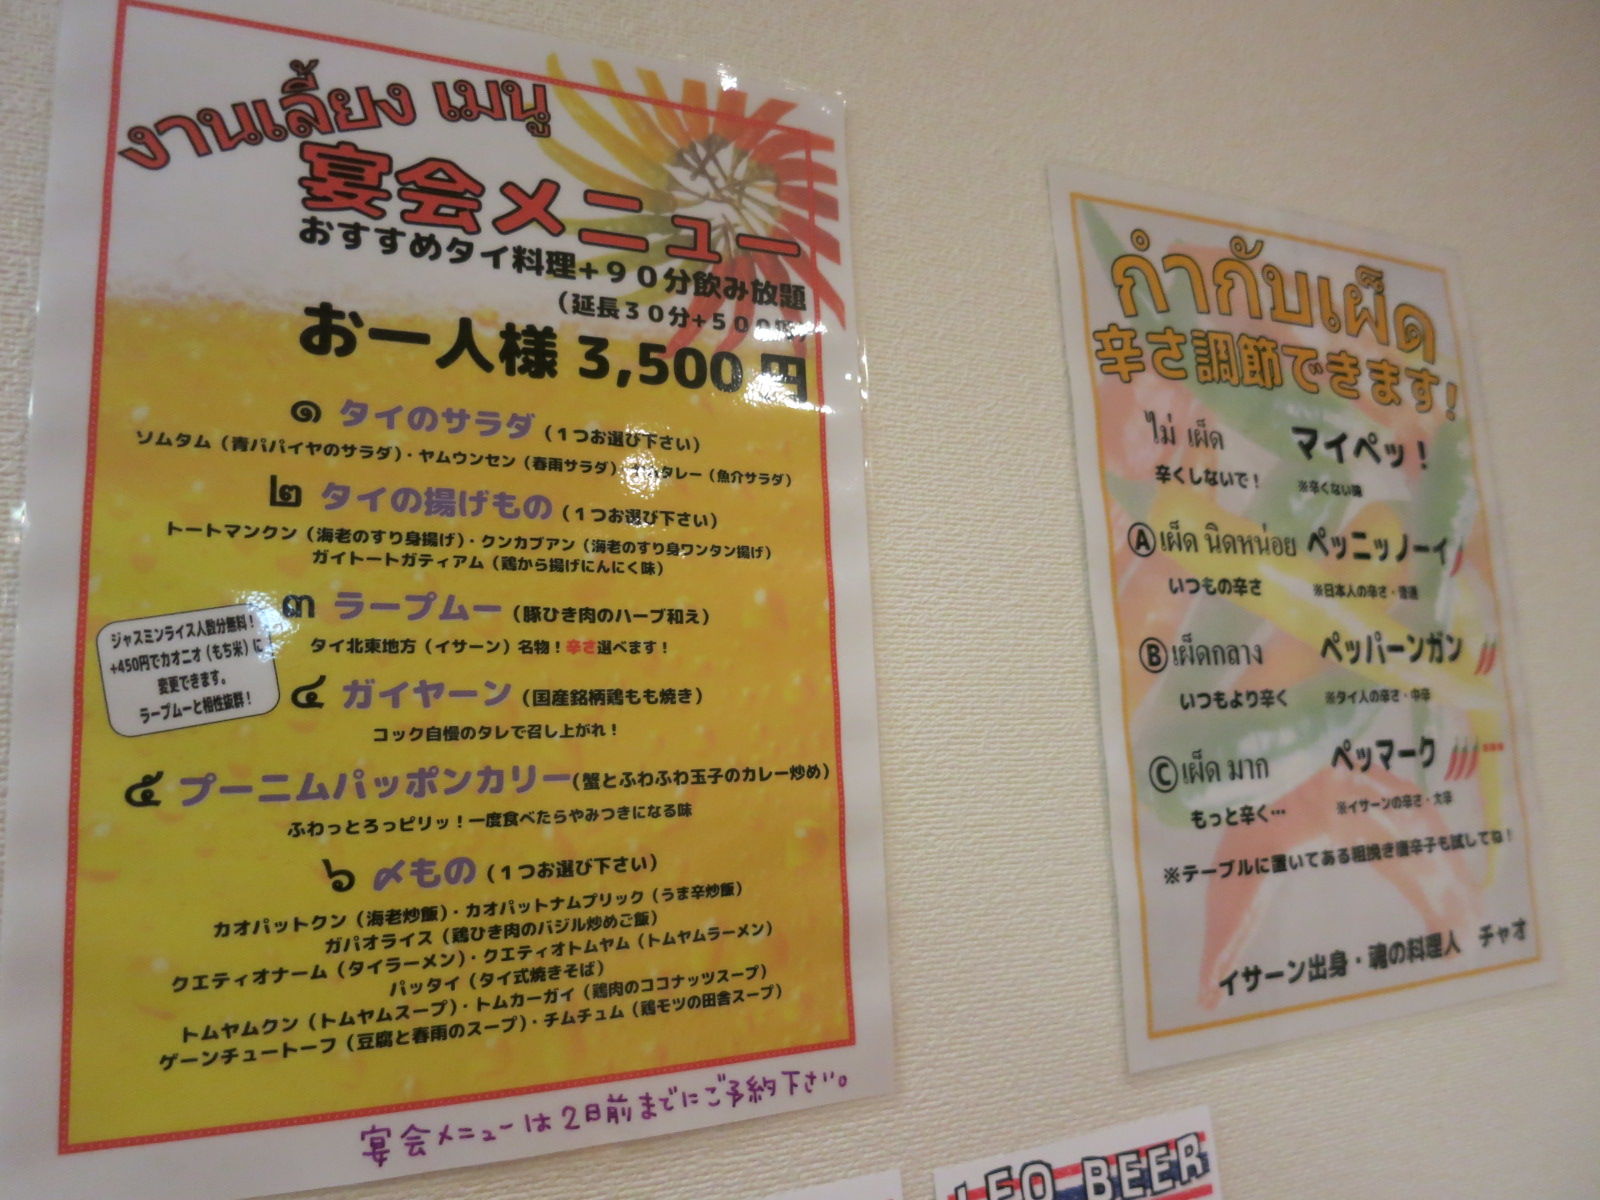 งานเลี้ยง เมนู
宴会メニュー
おすすめタイ料理+90分飲み放題
(延長30分+500円)
お一人様 3,500円
๑ タイのサラダ (1つお選び下さい)
ソムタム (青パパイヤのサラダ)・ヤムウンセン (春雨サラダ) タレー (魚介サラダ)
๒ タイの揚げもの (1つお選び下さい)
トートマンクン (海老のすり身揚げ)・クンカブアン (海老のすり身ワンタン揚げ)
ガイトートガティアム (鶏から揚げにんにく味)
๓ ラープムー (豚ひき肉のハーブ和え)
タイ北東地方 (イサーン) 名物!辛さ選べます!
ジャスミンライス人数分無料!
+450円でカオニオ (もち米) に
変更できます。
ラープムーと相性抜群!
๔ ガイヤーン (国産銘柄鶏もも焼き)
コック自慢のタレで召し上がれ!
๕ プーニムパッポンカリー (蟹とふわふわ玉子のカレー炒め)
ふわっとろっピリッ!一度食べたらやみつきになる味
๖ 〆もの (1つお選び下さい)
カオパットクン (海老炒飯)・カオパットナムプリック (うま辛炒飯)
ガパオライス (鶏ひき肉のバジル炒めご飯)
クエティオナーム (タイラーメン)・クエティオトムヤム (トムヤムラーメン)
パッタイ (タイ式焼きそば)
トムヤムクン (トムヤムスープ)・トムカーガイ (鶏肉のココナッツスープ)
ゲーンチュートーフ (豆腐と春雨のスープ)・チムチュム (鶏モツの田舎スープ)
宴会メニューは2日前までにご予約下さい。
กำกับเผ็ด
辛さ調節できます!
ไม่ เผ็ด マイペッ!
辛くしないで! ※辛くない味
Ⓐ เผ็ด นิดหน่อย ペッニッノーイ
いつもの辛さ ※日本人の辛さ・普通
Ⓑ เผ็ดกลาง ペッパーンガン
いつもより辛く ※タイ人の辛さ・中辛
Ⓒ เผ็ด มาก ペッマーク
もっと辛く… ※イサーンの辛さ・大辛
※テーブルに置いてある粗挽き唐辛子も試してね!
イサーン出身・魂の料理人 チャオ
LEO BEER